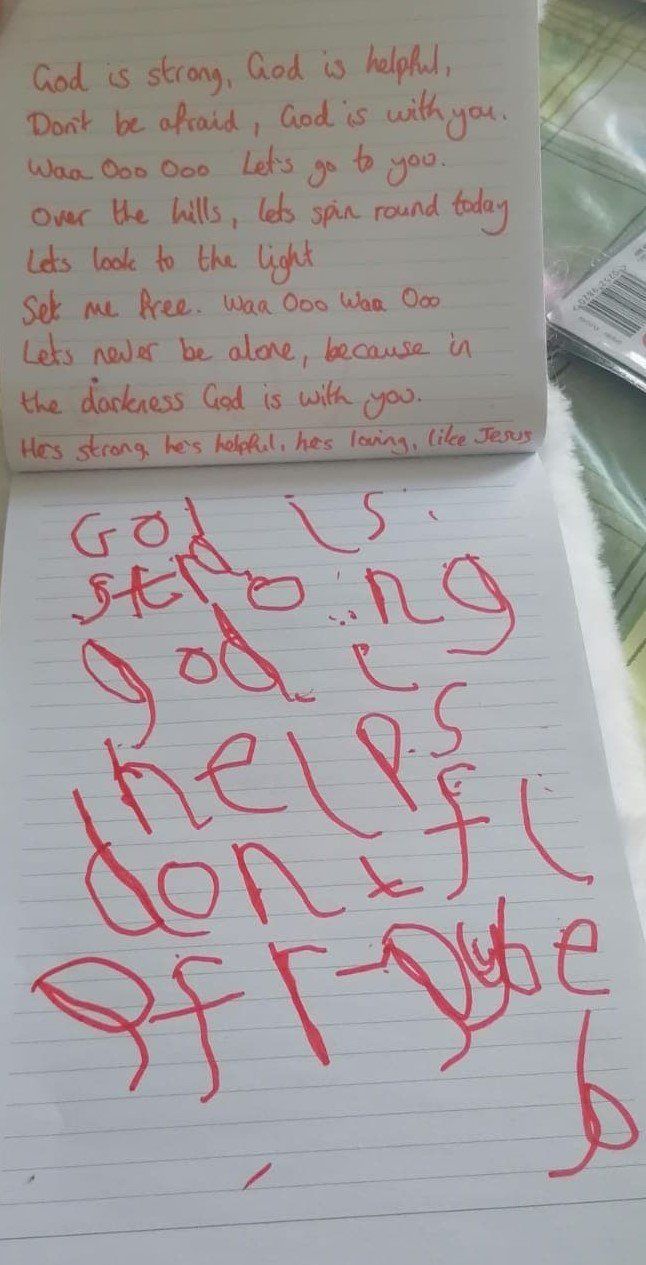 God is strong, God is helpful,
Don't be afraid, God is with you.
Waa Ooo Ooo Let's go to you.
Over the hills, lets spin round today
Lets look to the light
Set me free. Waa Ooo Waa Ooo
Lets never be alone, because in
the darkness God is with you.
He's strong, he's helpful, he's loving, like Jesus
God is
strong
god i
helps
dont fi
be